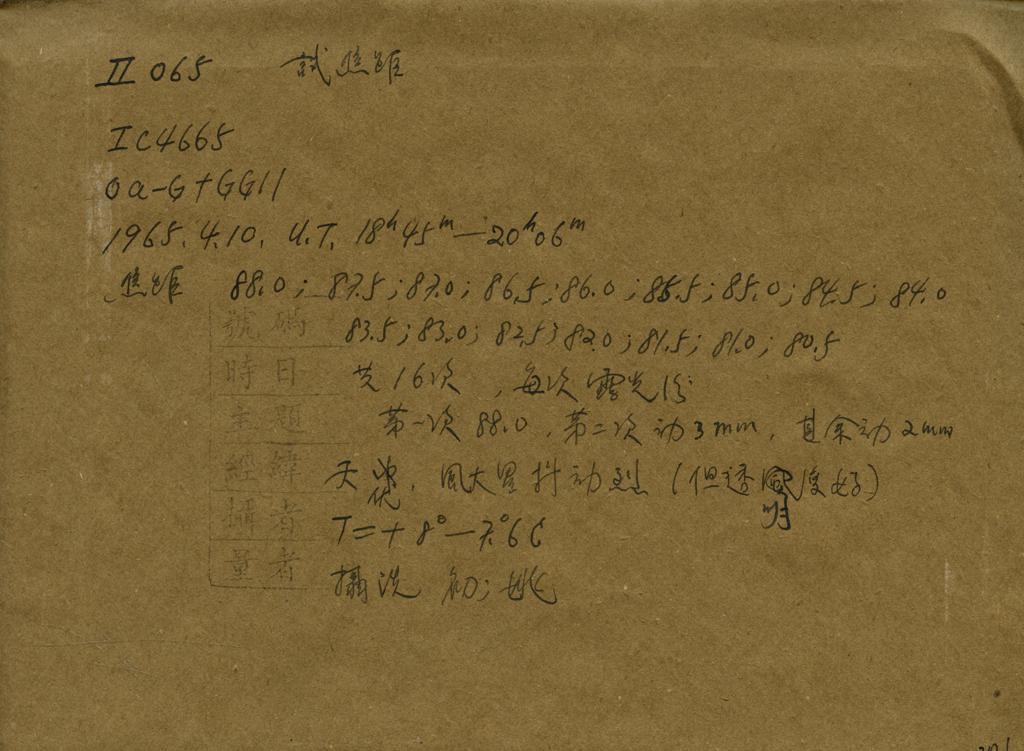 II 065 試焦距
IC4665
0a-G+GG11
1965. 4.10. U.T. 18ʰ45ᵐ—20ʰ06ᵐ
焦距 88.0; 87.5; 87.0; 86.5; 86.0; 85.5; 85.0; 84.5; 84.0
83.5; 83.0; 82.5; 82.0; 81.5; 81.0; 80.5
號碼
時日
主題
經緯
攝者
量者
共16次, 每次露光1分
第一次 88.0, 第二次动3mm, 其余动2mm
天, 風大星抖动烈 (但透明度好)
T=+8°—7.°6C
攝洗 初; 姚